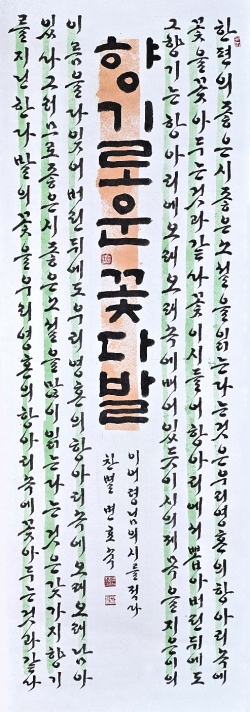 한편의 좋은 시 좋은 소설을 읽는다는 것은 우리 영혼의 항아리 속에
꽃을 꽂아 두는 것과 같사 꽃이 시들어 항아리에서 뽑아버린 뒤에도
그 향기는 항아리에 오래오래 속에 배어 있듯이 시의 제목을 지은이의
향기로운 꽃다발
이어령님의 시를 적사
찬별 변효숙
이름을 다 잊어버린 뒤에도 우리 영혼의 항아리 속에 오래오래 남아
있사 그러므로 좋은 시 좋은 소설을 많이 읽는다는 것은 갖가지 향기
를 지닌 한 다발의 꽃을 우리 영혼의 항아리 속에 꽂아 두는 것과 같사